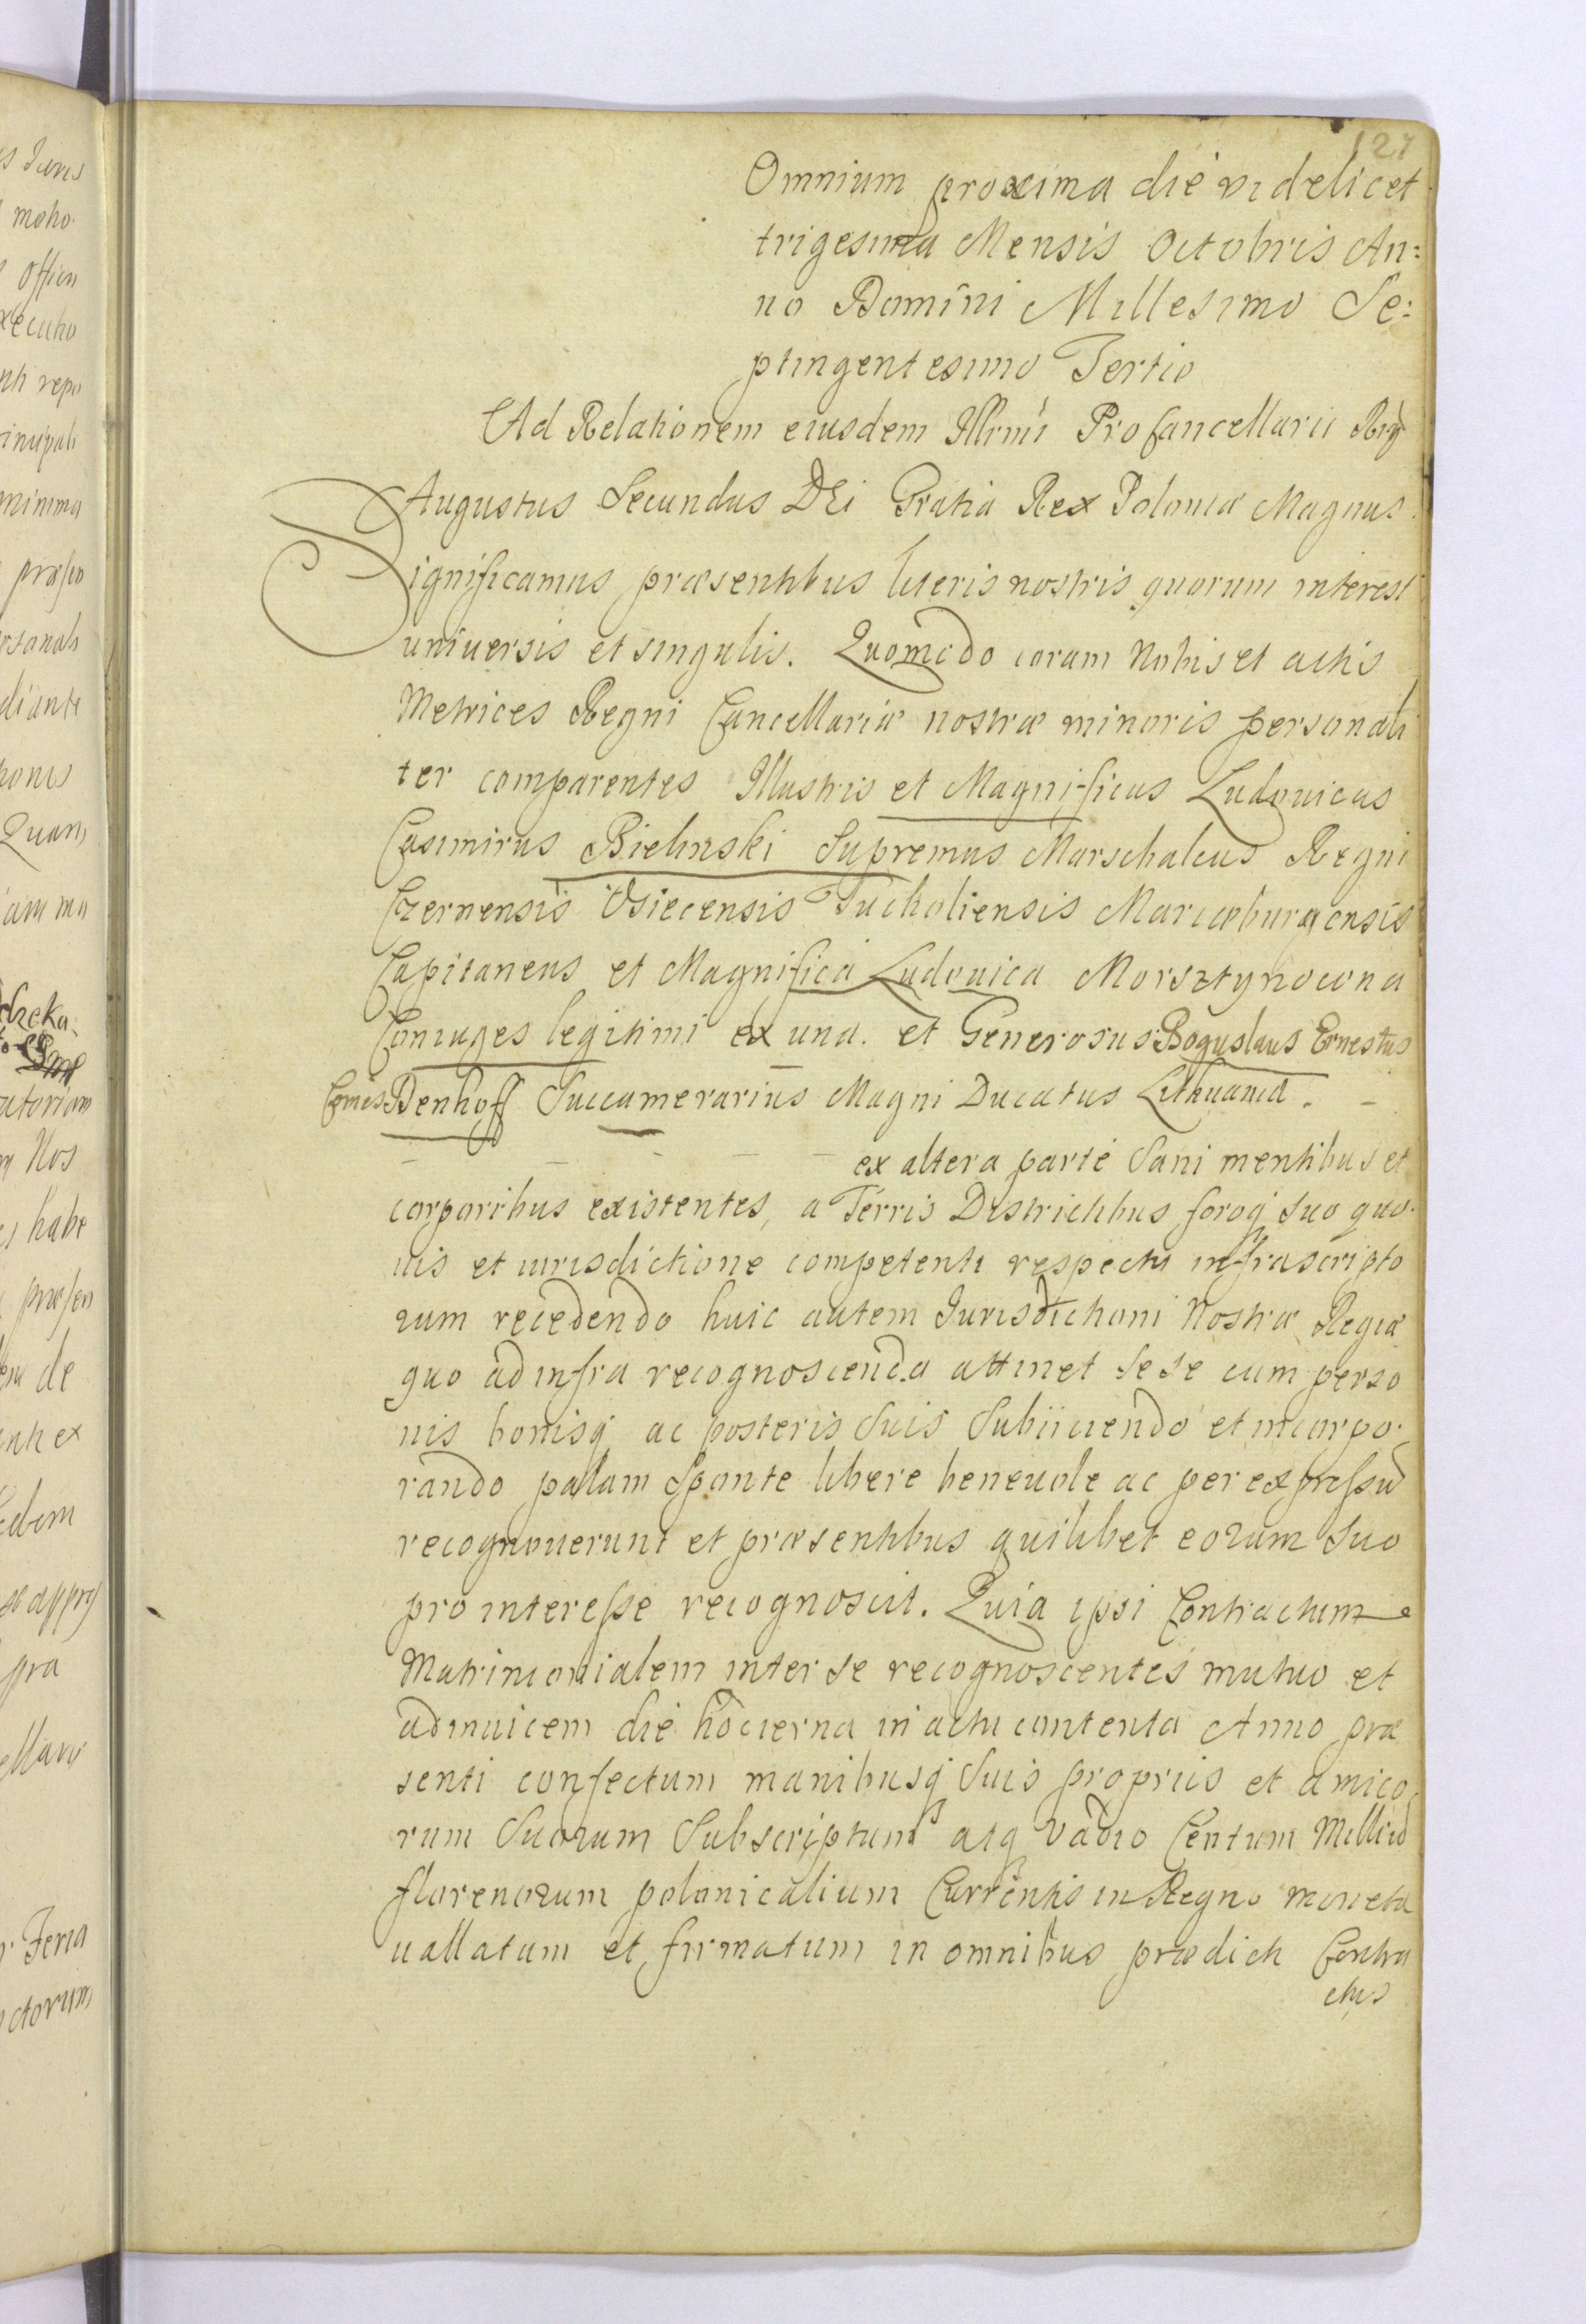 127
Omnium proxima die videlicet
trigesima Mensis Octobris An:
no Domini Millesimo Se:
ptingentesimo Tertio
Ad Relationem eiusdem Illrmi Procancellarii Rgni
Augustus Secundus DEi Gratia Rex Poloniæ Magnus
Significamus præsentibus literis nostris quorum interest
universis et singulis. Quomodo coram Nobis et actis
Metrices Regni Cancellariæ nostræ minoris personali
ter comparentes Illustris et Magnificus Ludovicus
Casimirus Bielinski Supremus Marschalcus Regni
Czernensis Osiecensis Tucholiensis Mariæburgensis
Capitaneus et Magnifica Ludovica Morsztynowna
Coniuges legitimi ex una. et Generosus Boguslaus Ernestus
Comes Denhoff Succamerarius Magni Ducatus Lithuaniæ. –
– – – – – ex altera parte Sani mentibus et
corporibus existentes, a Terris Districtibus foroq suo quo
uis et iurisdictione competenti respectu infrascripto
rum recedendo huic autem Jurisdictioni Nostræ Regiæ
quo ad infra recognoscenda attinet sese cum perso
nis bonisq ac posteris Suis Subiiciendo et incorpo
rando palam Sponte libere beneuole ac per expressũ
recognouerunt et præsentibus quilibet eorum Suo
pro interesse recognoscit. Quia ipsi Contractum
Matrimonialem inter se recognoscentes mutuo et
adinuicem die hodierna in actu contenta Anno præ
senti confectum manibusq Suis propriis et amico
rum Suorum Subscriptum atq vadio Centum Milliũ
florenorum polonicalium Currentis in Regno monetæ
uallatum et firmatum in omnibus prædicti Contra
ctus
is Juris
moho
Offici
xecutio
nti repo
rincipali
minima
præsen
rsonali
diante
Quam
iam ma
Nos
habe
præsen
de
ex
pra
Feria
ctorum